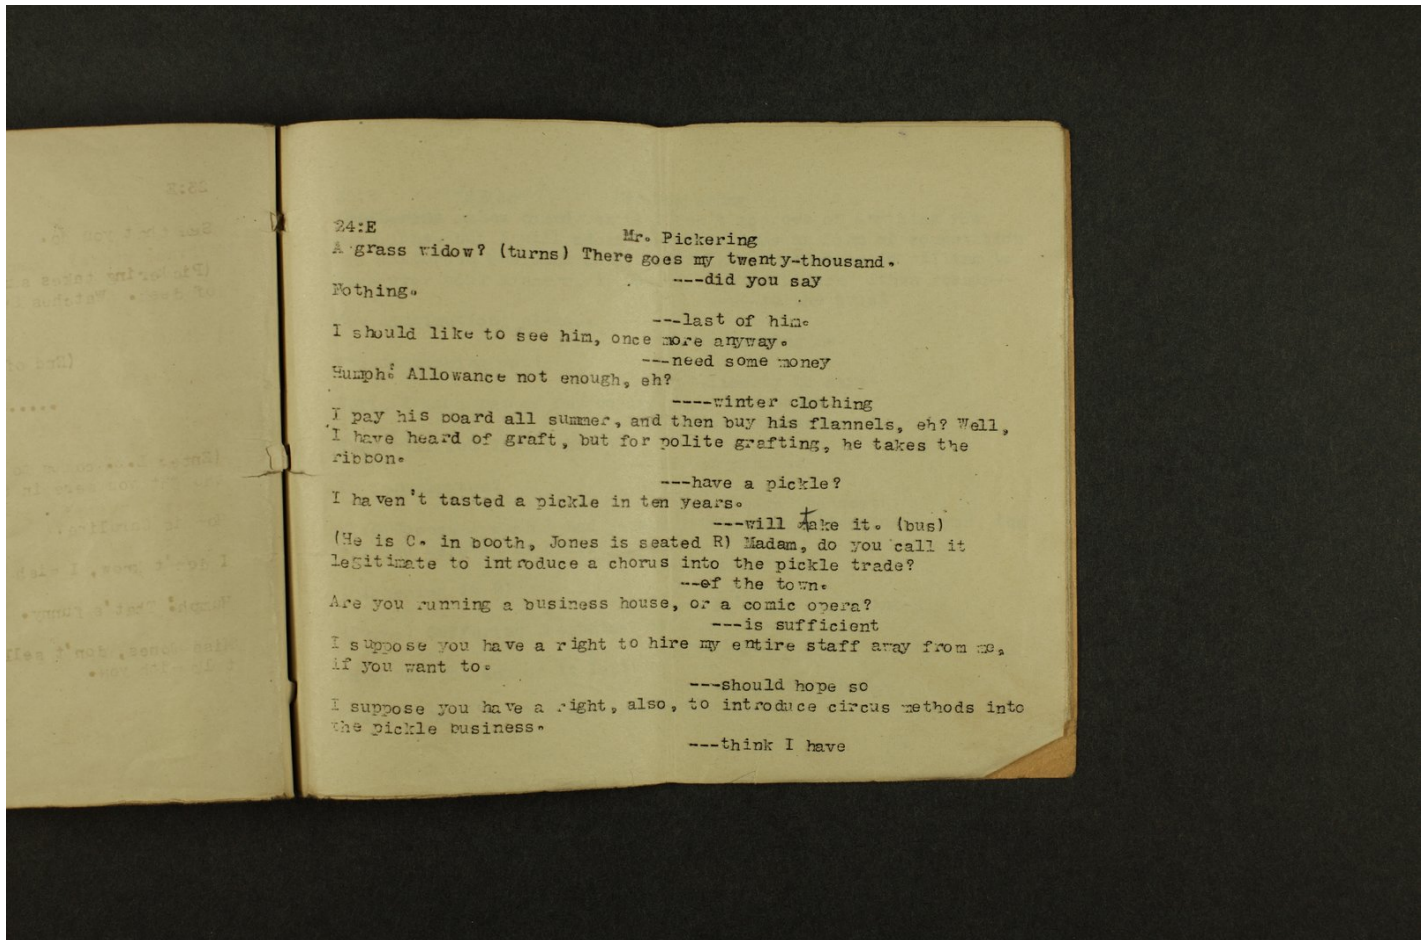 24:E
Mr. Pickering
A grass widow? (turns) There goes my twenty-thousand.
---did you say
Nothing.
---last of him.
I should like to see him, once more anyway.
---need some money
Humph: Allowance not enough, eh?
----winter clothing
I pay his board all summer, and then buy his flannels, eh? Well,
I have heard of graft, but for polite grafting, he takes the
ribbon.
---have a pickle?
I haven't tasted a pickle in ten years.
---will take it. (bus)
(He is C. in booth, Jones is seated R) Madam, do you call it
legitimate to introduce a chorus into the pickle trade?
--of the town.
Are you running a business house, or a comic opera?
---is sufficient
I suppose you have a right to hire my entire staff away from me,
if you want to.
---should hope so
I suppose you have a right, also, to introduce circus methods into
the pickle business.
---think I have